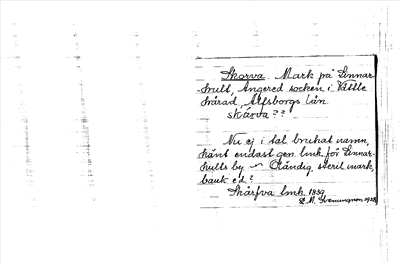 Skorva. Mark på Linnar-
hult, Angered socken i Vättle
härad, Älfsborgs län.
skårva??
Nu ej i tal brukat namn,
känt endast gen. lmk. för Linnar-
hults by. Ständig, steril mark,
bank el.?
Skårfva lmk. 1839